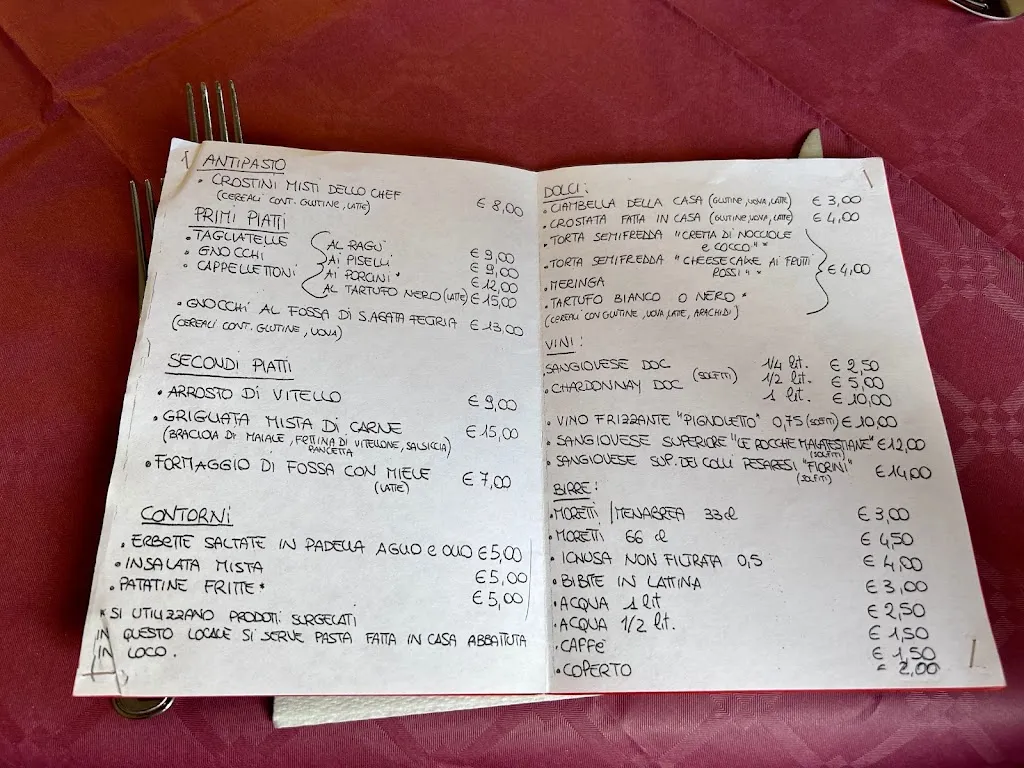 ANTIPASTO
• CROSTINI MISTI DELLO CHEF € 8,00
(CEREALI CONT. GLUTINE, LATTE)
PRIMI PIATTI
• TAGLIATELLE
• GNOCCHI
• CAPPELLETTONI
AL RAGU' € 9,00
AI PISELLI € 9,00
AI PORCINI* € 12,00
AL TARTUFO NERO (LATTE) € 15,00
• GNOCCHI AL FOSSA DI S.AGATA FELTRIA € 13,00
(CEREALI CONT. GLUTINE, UOVA)
SECONDI PIATTI
• ARROSTO DI VITELLO € 9,00
• GRIGLIATA MISTA DI CARNE € 15,00
(BRACIOLA DI MAIALE, FETTINA DI VITELLONE, SALSICCIA)
PANCETTA
• FORMAGGIO DI FOSSA CON MIELE € 7,00
(LATTE)
CONTORNI
• ERBETTE SALTATE IN PADELLA AGLIO e OLIO € 5,00
• INSALATA MISTA € 5,00
• PATATINE FRITTE* € 5,00
* SI UTILIZZANO PRODOTI SURGELATI
IN QUESTO LOCALE SI SERVE PASTA FATTA IN CASA ABBATTUTA
IN LOCO.
DOLCI:
• CIAMBELLA DELLA CASA (GLUTINE, UOVA, LATTE) € 3,00
• CROSTATA FATTA IN CASA (GLUTINE, UOVA, LATTE) € 4,00
• TORTA SEMIFREDDA "CREMA DI NOCCIOLE
e COCCO"*
• TORTA SEMIFREDDA "CHEESECAKE AI FRUTTI
ROSSI"* € 4,00
• MERINGA
• TARTUFO BIANCO O NERO*
(CEREALI CON GLUTINE, UOVA, LATTE, ARACHIDI)
VINI:
• SANGIOVESE DOC 1/4 lit. € 2,50
• CHARDONNAY DOC (SOLFITI) 1/2 lit. € 5,00
1 lit. € 10,00
• VINO FRIZZANTE "PIGNOLETTO" 0,75 (SOLFITI) € 10,00
• SANGIOVESE SUPERIORE "LE ROCCHE MALATESTIANE" € 12,00
(SOLFITI)
• SANGIOVESE SUP. DEI COLLI PESARESI "FIORINI" € 14,00
(SOLFITI)
BIRRE:
• MORETTI / MENABREA 33 cl € 3,00
• MORETTI 66 cl € 4,50
• ICNUSA NON FILTRATA 0,5 € 4,00
• BIBITE IN LATTINA € 3,00
• ACQUA 1 lit € 2,50
• ACQUA 1/2 lit. € 1,50
• CAFFE € 1,50
• COPERTO € 2,00